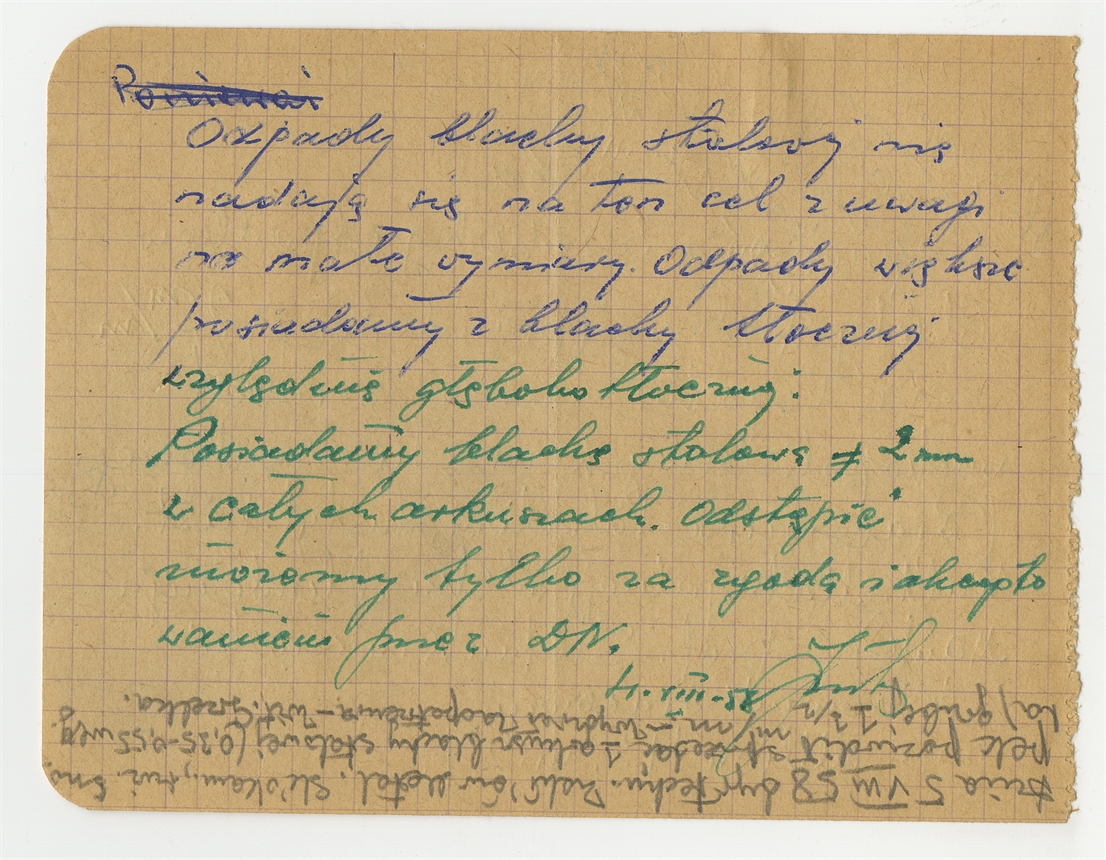 Ponieważ
Odpady blachy stalowej nie
nadają się na ten cel z uwagi
na małe wymiary. Odpady większe
posiadamy z blachy tłocznej
względnie głęboko tłocznej.
Posiadamy blachę stalową # 2 mm
w całych arkuszach. Odstąpić
możemy tylko za zgodą i akcepto
waniem przez DN.
4.VIII.58
Dnia 5 VIII 58 dyr. techn. Zakładów Metal. Skłokam, inż. Smo
pek poziedił sprzedać 1 arkusz blachy stalowej (0,35-0,55 węg
la) grubej 1 3/4 m/m - Wydział Zaopatrzenia - Wł. Grzelka.